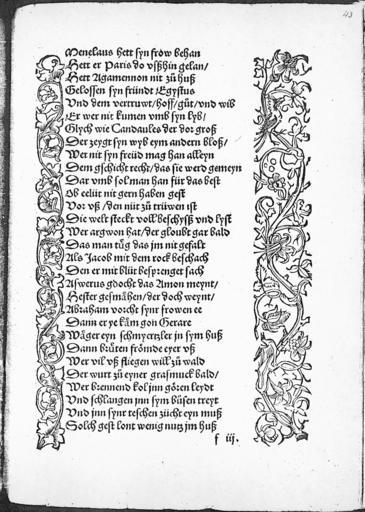 43
Menelaus hett syn frow behan
Hett er Paris do vsshin gelan/
Hett Agamennon nit zů huß
Gelossen syn fründt Egystus
Vnd dem vertruwt/hoff/gůt/vnd wib
Er wer nit kumen vmb syn lyb/
Glych wie Candaules der dor groß
Der zeygt syn wyb eym andern bloß/
Wer nit syn freüd mag han alleyn
Dem gschicht recht/das sie werd gemeyn
Dar vmb sol man han für das best
Ob eelüt nit gern haben gest
Vor vß/den nüt zů trüwen ist
Die welt steckt voll beschysß vnd lyst
Wer argwon hat/der gloubt gar bald
Das man tůg das jm nit gefalt
Als Jacob mit dem rock beschach
Den er mit blůt besprenget sach
Aswerus gdocht das Amon meynt/
Hester gesmåhen/der doch weynt/
Abraham vorcht synr frowen ee
Dann er ye kåm gon Gerare
Wåger eyn schmyertzler jn sym huß
Dann brůten frömde eyer vß
Wer vil vß fliegen will zů wald
Der wurt zů eyner grasmuck bald/
Wer brennend kol jnn gören leydt
Vnd schlangen jnn sym bůsen treyt
Vnd jnn synr teschen zücht eyn muß
Solch gest lont wenig nutz jm huß
f iij.